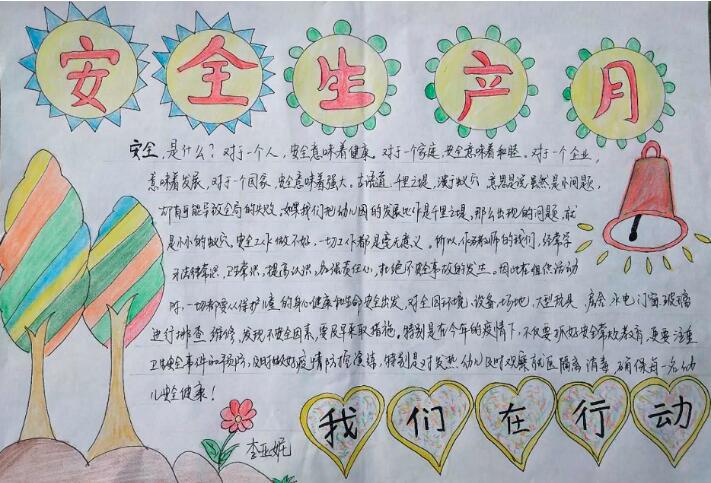 安全生产月
安全,是什么?对于一个人,安全意味着健康。对于一个家庭,安全意味着和睦。对于一个企业,
意味着发展,对于一个国家,安全意味着强大。古语道,千里之堤,溃于蚁穴,意思是说虽然是小问题,
却有可能导致全局的失败,如果我们把幼儿园的发展比作是千里之堤,那么出现的问题就
是小小的蚁穴。安全工作做不好,一切工作都是毫无意义。所以,作为教师的我们,经常学
习法律常识,卫生常识,提高认识,加强责任心,杜绝不安全事故的发生。因此在组织活动
时,一切都要从保护儿童的身心健康和生命安全出发,对全园环境、设备、场地、大型玩具、宿舍、水电、门窗、玻璃
进行排查、维修,发现不安全因素,要及早采取措施。特别是在今年的疫情下,不仅要抓好安全常规教育,更要注重
卫生安全事件的预防,及时做好疫情防控演练,特别是对发热幼儿及时观察就医隔离消毒,确保每一名幼
儿安全健康!
李亚妮
我们在行动